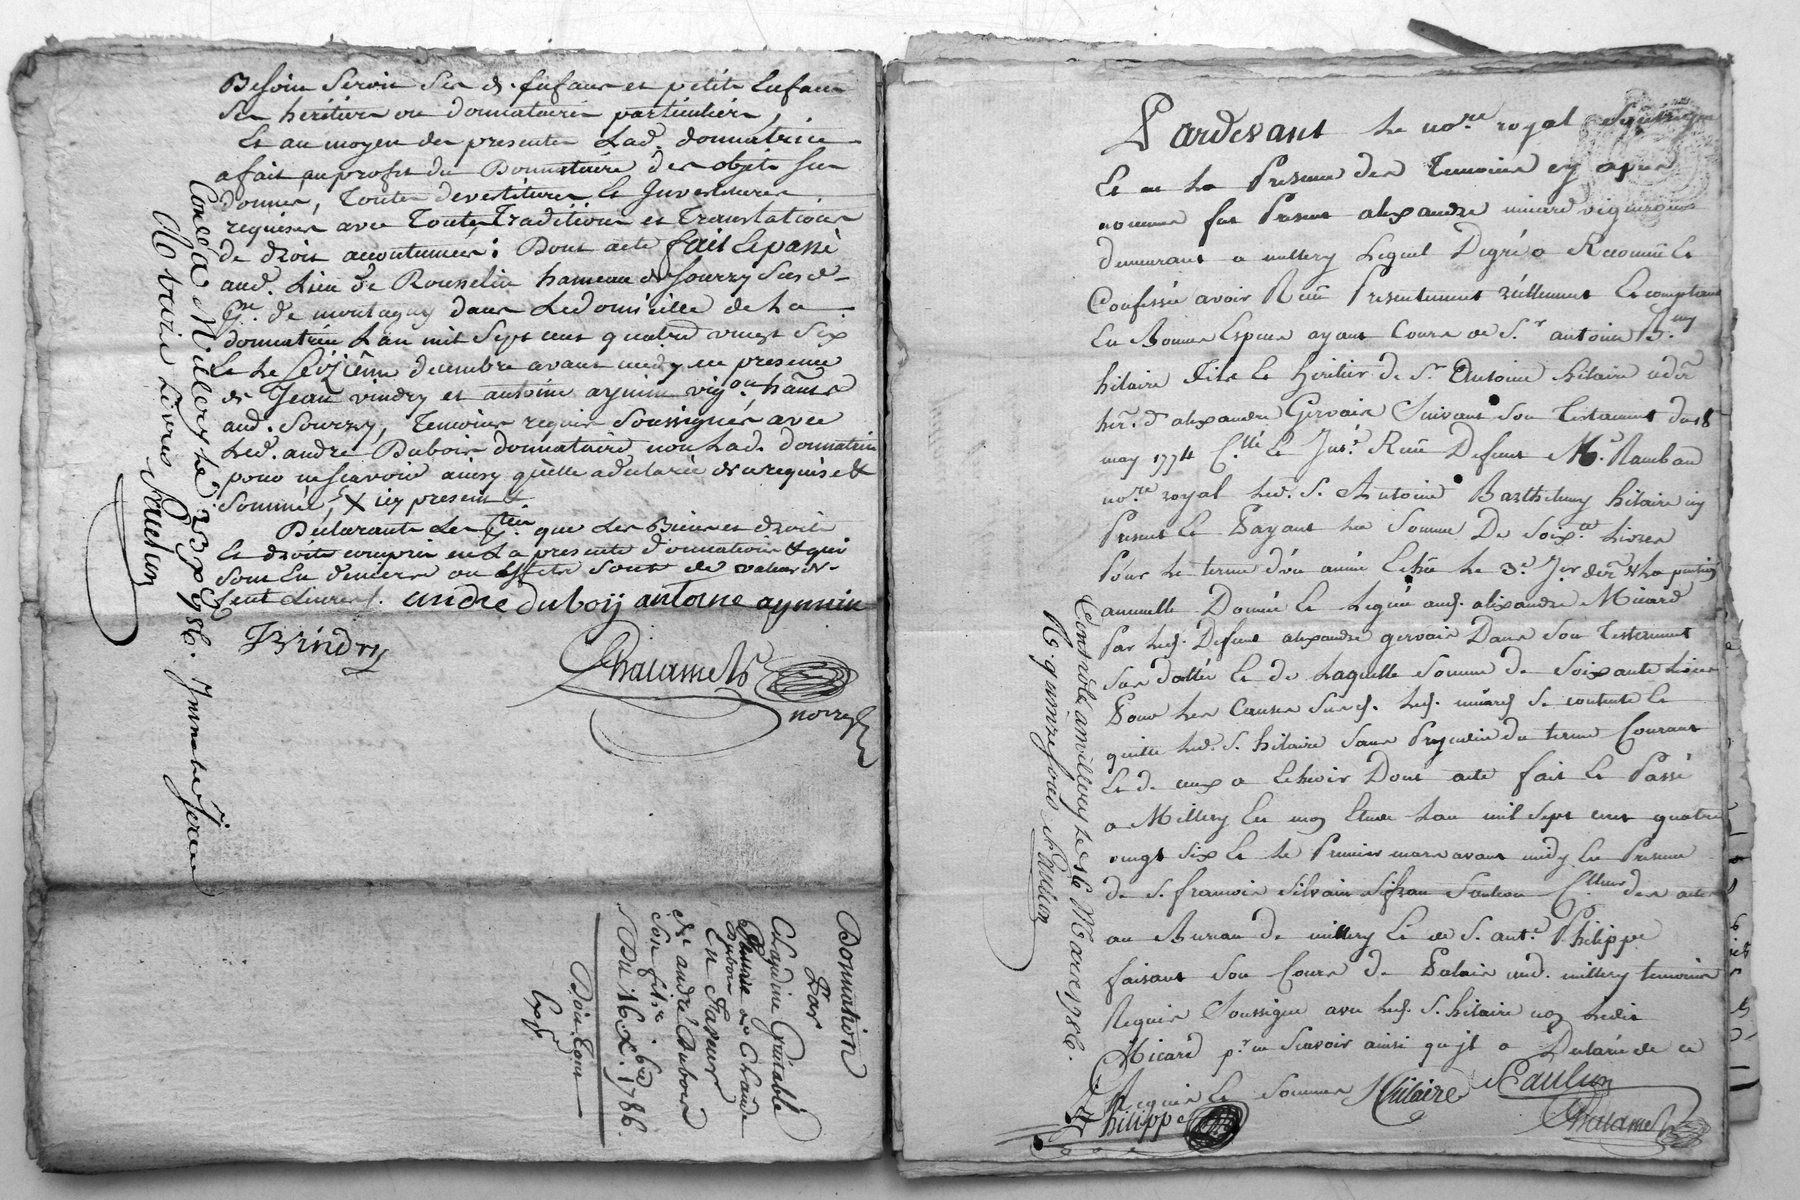 Besoin seroit ses d. Enfans et petits Enfans
ses héritiers ou donnataires particuliers,
Et au moyen des presentes Lad. donnatrice
a fait au profit du Donnataire des objets sus
donnés, Toutes devestitures et Investitures
requises avec Toutes Traditions et Translations
de droit accoutumées: Dont acte fait et passé
aud. Lieu de Rousselin hameau de Sourzy
de montagny dans Le domicille de La
donnatrice L'an mil Sept cent quatre vingt Six
Et le Seizième decembre avant midy en presence
de Jean vindry et antoine aymin vig.on h̃ants
aud. Sourzy, Temoins requis Soussignés avec
Led. andré Dubois donnataire non Lad. donnatrice
pour ne scavoir ainsy qu'elle a declarée de ce requise &
Sommée, X icy presents
Declarants Les que Les Biens et droits
Et droits compris en La presente donnation & qui
sont En deniers ou effets sont de valeur de
cent Livres. andre duboij antoine aymin
JVindry
Chalamel
not. royal
Con.lé a Millery Le 23 Xbre 1786. Insinué et Icelui
Saulun
Donnation
Par
Claudine Guinable
veuve de Claude
Dubois
En Faveur
de andré Dubois
son fils.
Du 16 Xbre 1786.
Exp.
Pardevant Le no.re royal Soussigné
Et en La Presence des Temoins cy apres
nommes fut Present alexandre micard vigneron
demeurant a millery Lequel Degré a Reconnu Et
Confessé avoir Recu Presentement réellement Et comptant
En Bonnes Especes ayant Cours de S.r antoine B.my
hilaire fils Et heritier de S.r Antoine hilaire
her. d'alexandre Gervais Suivant Son Testament du 18
may 1774 C.llé Et Ins.é Recu Defunt M.e Rambau
no.re royal Led. S. Antoine Barthelemy hilaire icy
Present Et Payant La Somme De Soix.te Livres
Pour Le terme d'une année Echue Le 3.e der La pension
annuelle Donnée Et Leguée aud. alexandre Micard
Par Led. Defunt alexandre gervais Dans Son Testament
Sus datté Et de Laquelle Somme de Soixante Livres
Pour Les Causes Susd. Led. micard Se contente Et
quitte Led. S. hilaire Sans Prejudice du terme Courant
Et de ceux a Echeoir Dont acte fait Et Passé
a Millery En mon Etude L'an mil Sept cent quatre
vingt Six Et Le Premier mars avant midy En Presence
de S. francois Silvain Saulun C.lleur des actes
au Bureau de millery Et de S. ant.e Philippe
faisant Son Cours de Palais aud. millery temoins
Requis Soussignés avec Led. S. hilaire non Ledit
Micard p.r ne Scavoir ainsi qu'il a Declaré de ce
Requis Et Sommé Hilaire Saulun
Philippe Chalamel
Controlé a millery Le 16 Mars 1786.
R. quinze sous Saulun